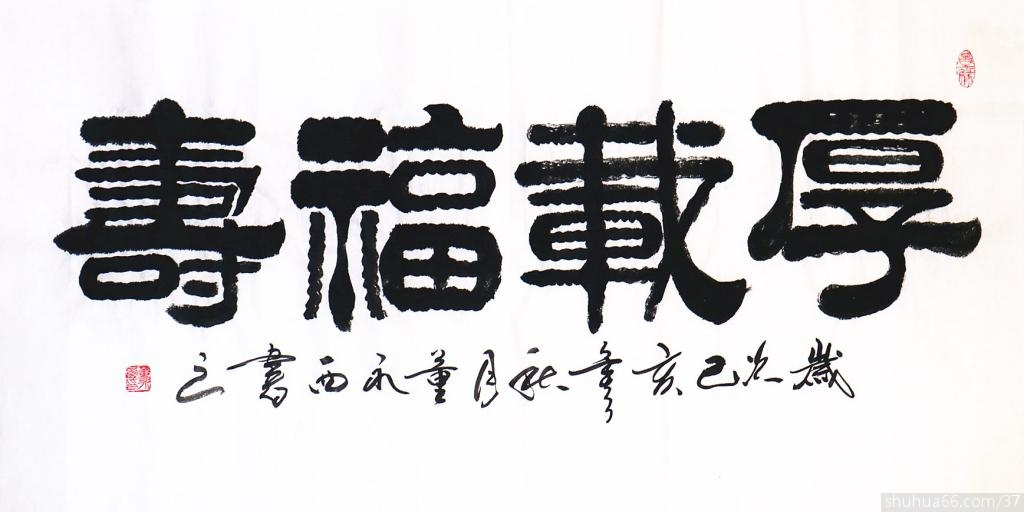 厚載福壽
歲次己亥年秋月董永西書之
shuhua66.com/37